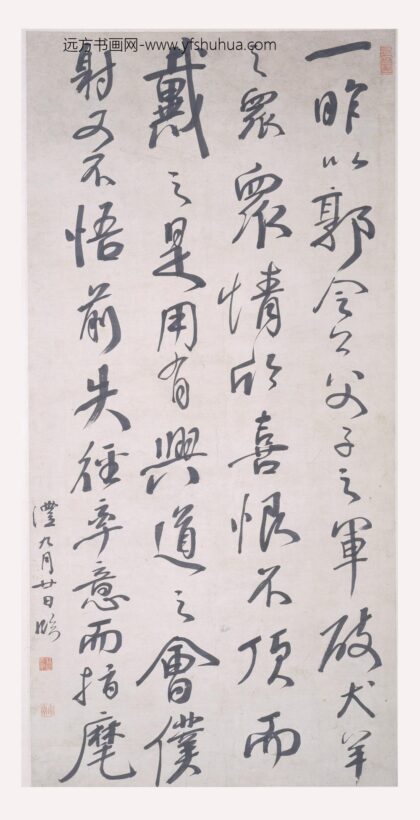 远方书画网-www.yfshuhua.com
一昨以郭令公父子之軍破犬羊
之眾眾情欣喜恨不頂而
戴之是用有興道之會僕
射又不悟前失徑率意而指麾
澧九月廿日臨